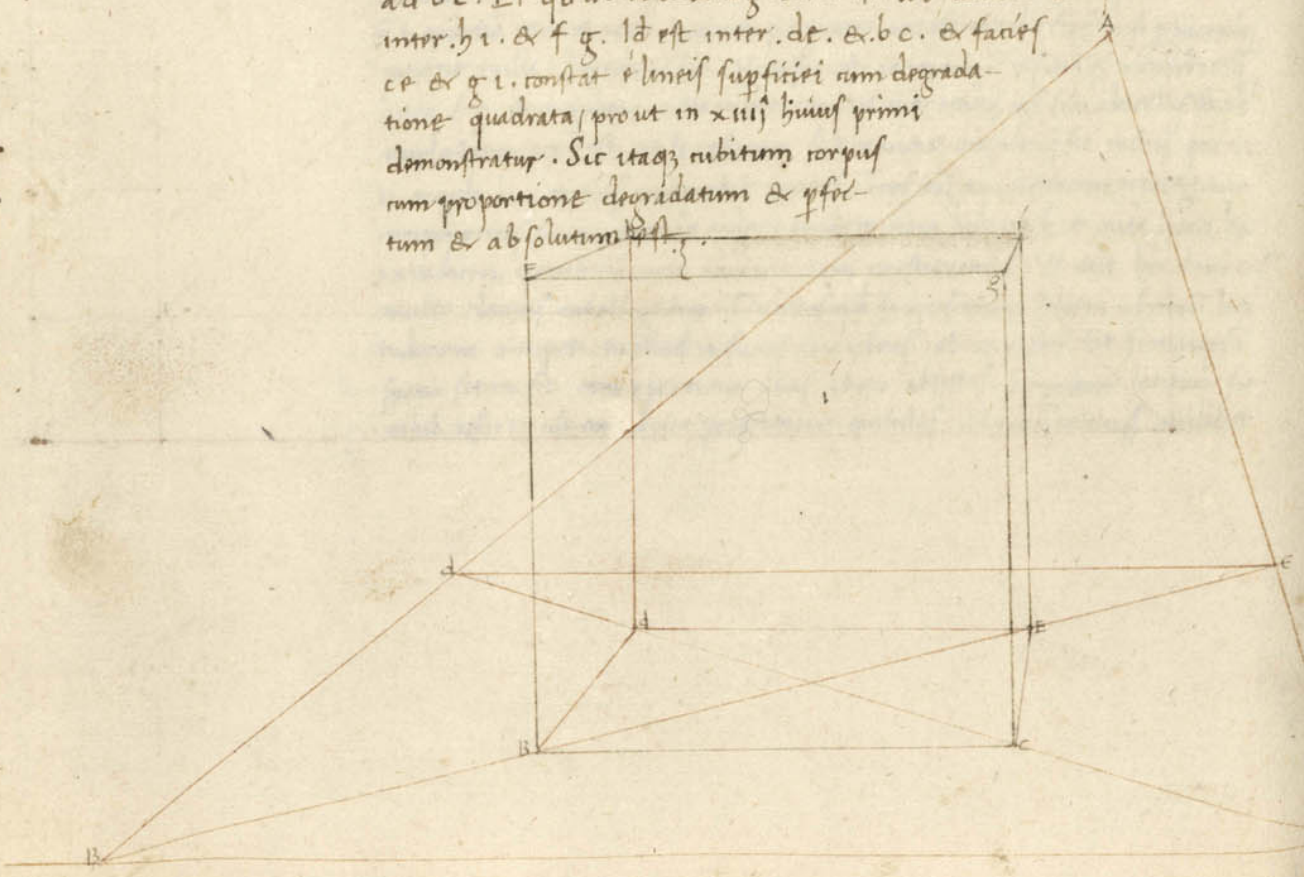 inter. h i. & f g. Id est inter. de. &. b c. & facies
ce & g i. constat é lineis supficiei cum degrada-
tione quadrata, prout in xiiij huius primi
demonstratur. Sic itaqꝫ cubitum corpus
cum proportione degradatum & ꝑfec-
tum & absolutum est.
A
F
g
d
e
d
E
B
C
B